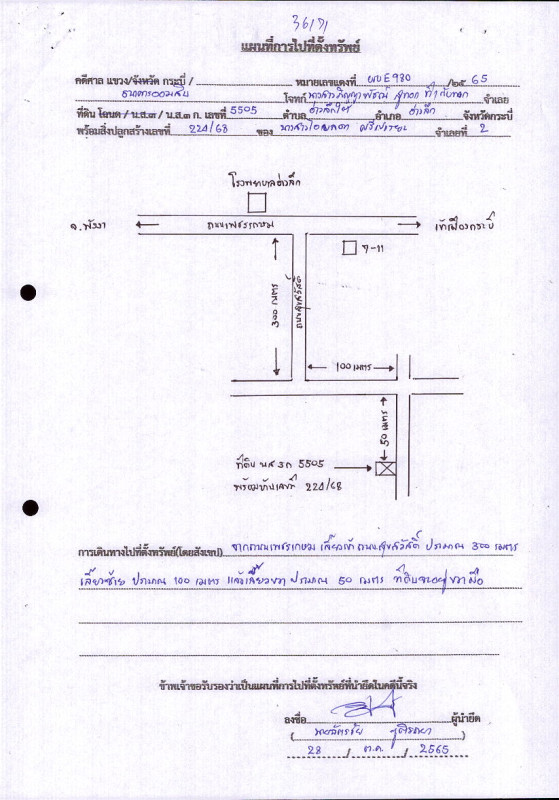 36/91
แผนที่การไปที่ตั้งทรัพย์
คดีศาล แขวง/จังหวัด กระบี่ / หมายเลขแดงที่ ผบE980 /๒๕ 65
ธนาคารออมสิน โจทก์ นางสาว ที่1 กับพวก จำเลย
ที่ดิน โฉนด / น.ส.๓ / น.ส.๓ ก. เลขที่ 5505 ตำบล อ่าวลึกใต้ อำเภอ อ่าวลึก จังหวัดกระบี่
พร้อมสิ่งปลูกสร้างเลขที่ 224/68 ของ นางสาว จำเลยที่ 2
โรงพยาบาลอ่าวลึก
จ.พังงา ถนนเพชรเกษม เข้าเมืองกระบี่
7-11
300 เมตร
ถนนสุขสวัสดิ์
100 เมตร
50 เมตร
ที่ดิน น.ส 3ก 5505
พร้อมบ้านเลขที่ 224/68
การเดินทางไปที่ตั้งทรัพย์(โดยสังเขป) จากถนนเพชรเกษม เลี้ยวเข้า ถนนสุขสวัสดิ์ ประมาณ 300 เมตร
เลี้ยวซ้าย ประมาณ 100 เมตร แล้วเลี้ยวขวา ประมาณ 50 เมตร ที่ดินจะอยู่ขวามือ
ข้าพเจ้าขอรับรองว่าเป็นแผนที่การไปที่ตั้งทรัพย์ที่นำยึดในคดีนี้จริง
ลงชื่อ ผู้นำยึด
28 / ต.ค. / 2565